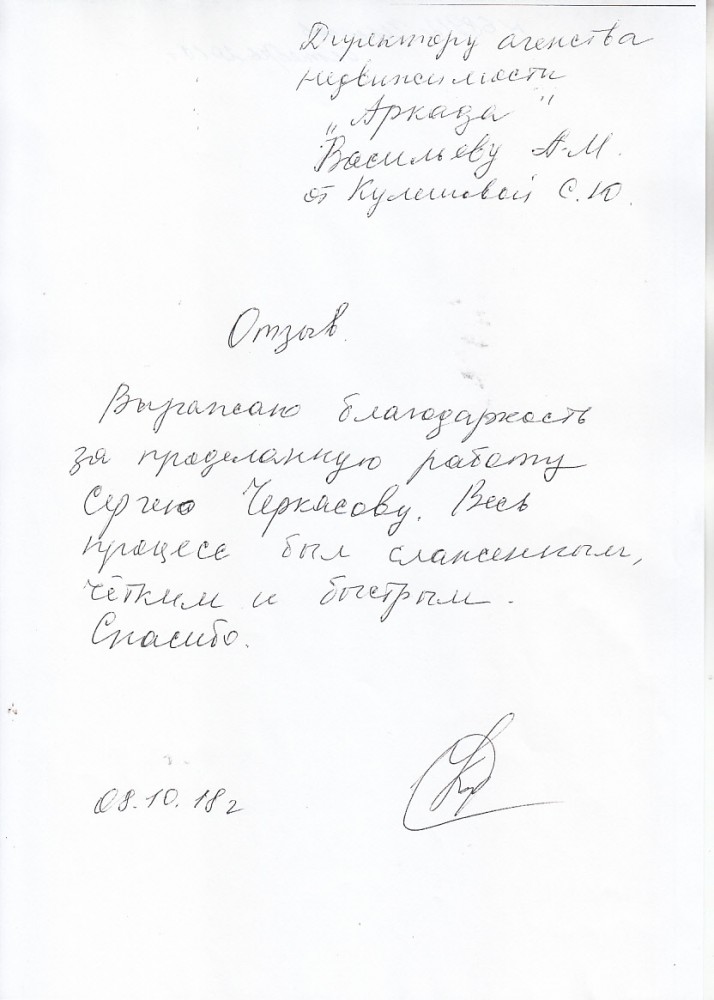 Директору агенства
недвижимости
„Аркада"
Васильеву А.М.
от Кулешовой С.Ю.
Отзыв.
Выражаю благодарность
за проделанную работу
Сергею Черкасову. Весь
процесс был слаженным,
чётким и быстрым.
Спасибо.
08.10.18г